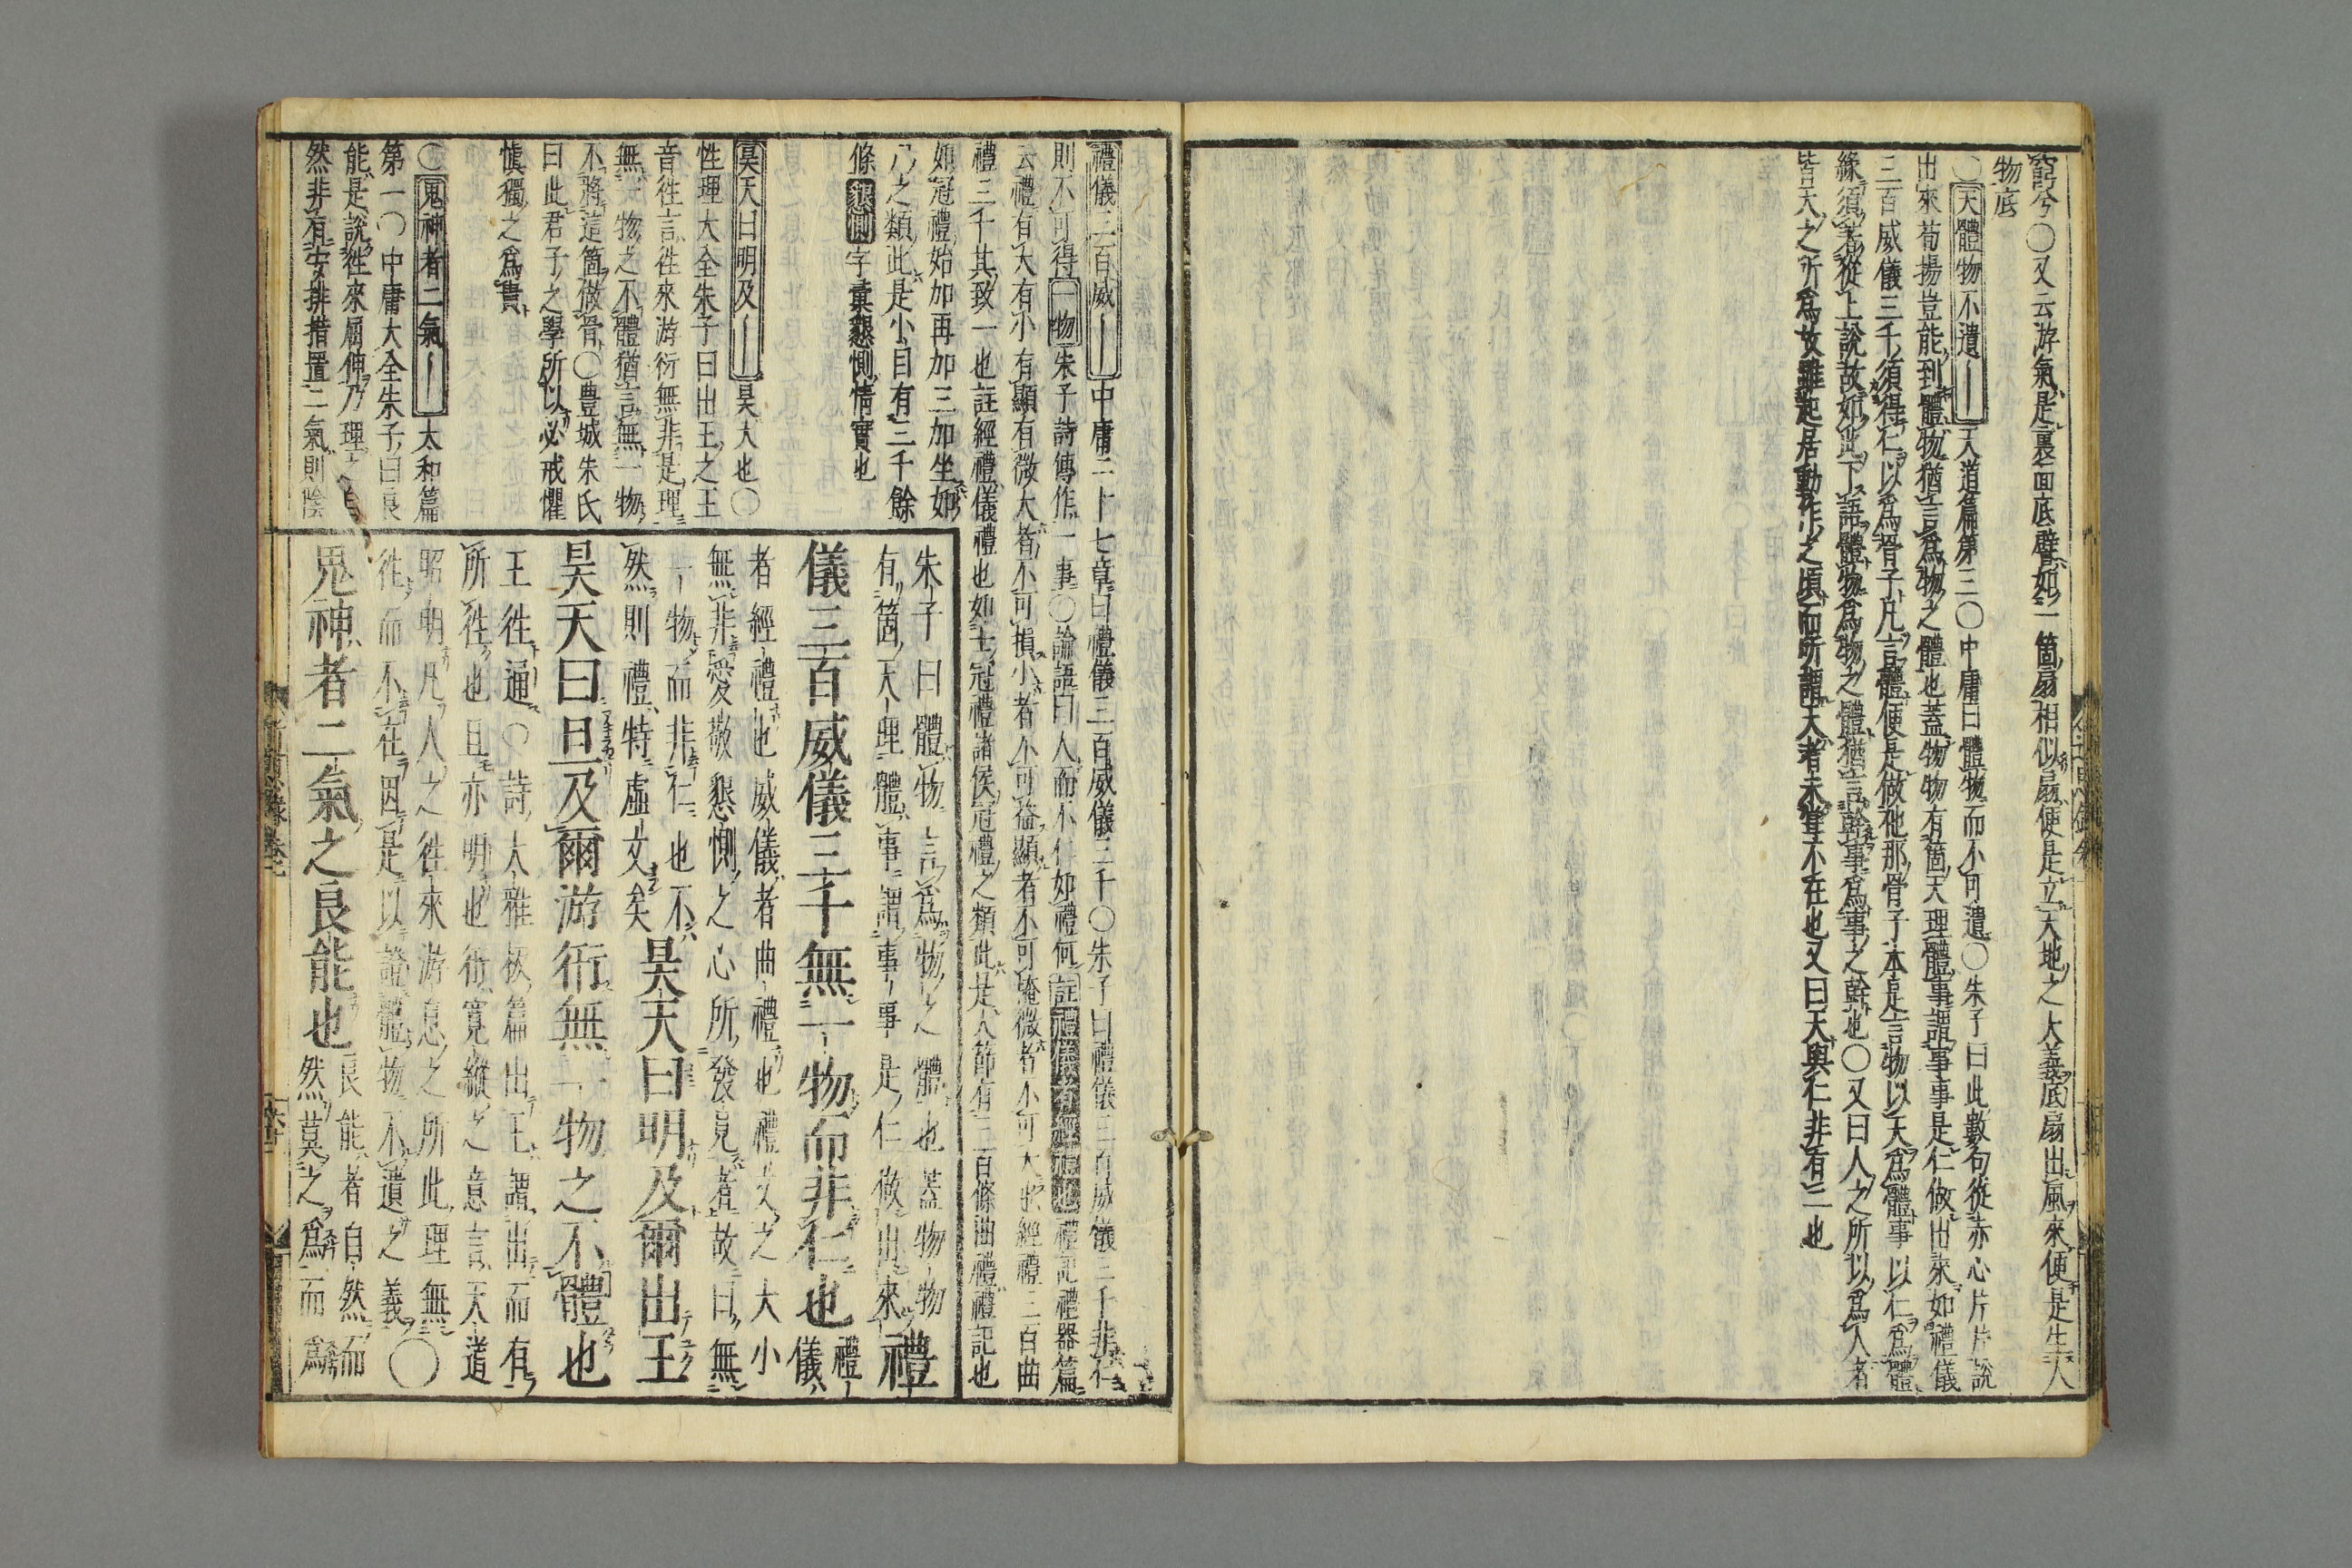 窮兮○又云游氣是裏面底譬如一箇扇相似扇便是立天地之大義底扇出風來便是生人
物底
○天體物不遺 天道篇第三○中庸曰體物而不可遺○朱子曰此數句從赤心片片說
出來荀揚豈能到體物猶言爲物之體也蓋物物有箇天理體事謂事事是仁做出來如禮儀
三百威儀三千須得仁以爲骨子凡言體便是做他那骨子本是言物以天爲體事以仁爲體
緣須著從上說故如此下語體物爲物之體猶言幹事爲事之幹也○又曰人之所以爲人者
皆天之所爲故雖起居動作之頃而所謂天者未嘗不在也又曰天與仁非有二也
禮儀三百威 中庸二十七章曰禮儀三百威儀三千○朱子曰禮儀三百威儀三千非仁
則不可得一物朱子詩傳作一事○論語曰人而不仁如禮何註禮儀有經禮也禮記禮器篇
云禮有大有小有顯有微大者不可損小者不可益顯者不可掩微者不可大也經禮三百曲
禮三千其致一也註經禮儀禮也如士冠禮諸侯冠禮之類此是大節有三百條曲禮禮記也
如冠禮始加再加三加坐如
尸之類此是小目有三千餘
條懇惻字彙懇惻情實也
昊天曰明及 昊大也○
性理大全朱子曰出王之王
音往言往來游衍無非是理
無一物之不體猶言無一物
不將這箇做骨○豊城朱氏
曰此君子之學所以必戒懼
愼獨之爲貴
○鬼神者二氣 太和篇
第一○中庸大全朱子曰良
能是說往來屈伸乃理之自
然非有安排措置二氣則陰
朱子曰體物言爲物之體也蓋物物
有箇天理體事謂事事是仁做出來禮
儀三百威儀三千無一物而非仁也禮儀
者經禮也威儀者曲禮也禮文之大小
無非愛敬懇惻之心所發見者故曰無
一物而非仁也不然則禮特虛文矣昊天曰明及爾出王
昊天曰旦及爾游衍無一物之不體也
王往通○詩大雅板篇出王謂出而有
所往也旦亦明也衍寬縱之意言天道
昭明凡人之往來游息之所此理無
往而不在因是以證體物不遺之義○
鬼神者二氣之良能也良能者自然而
然莫之爲而爲